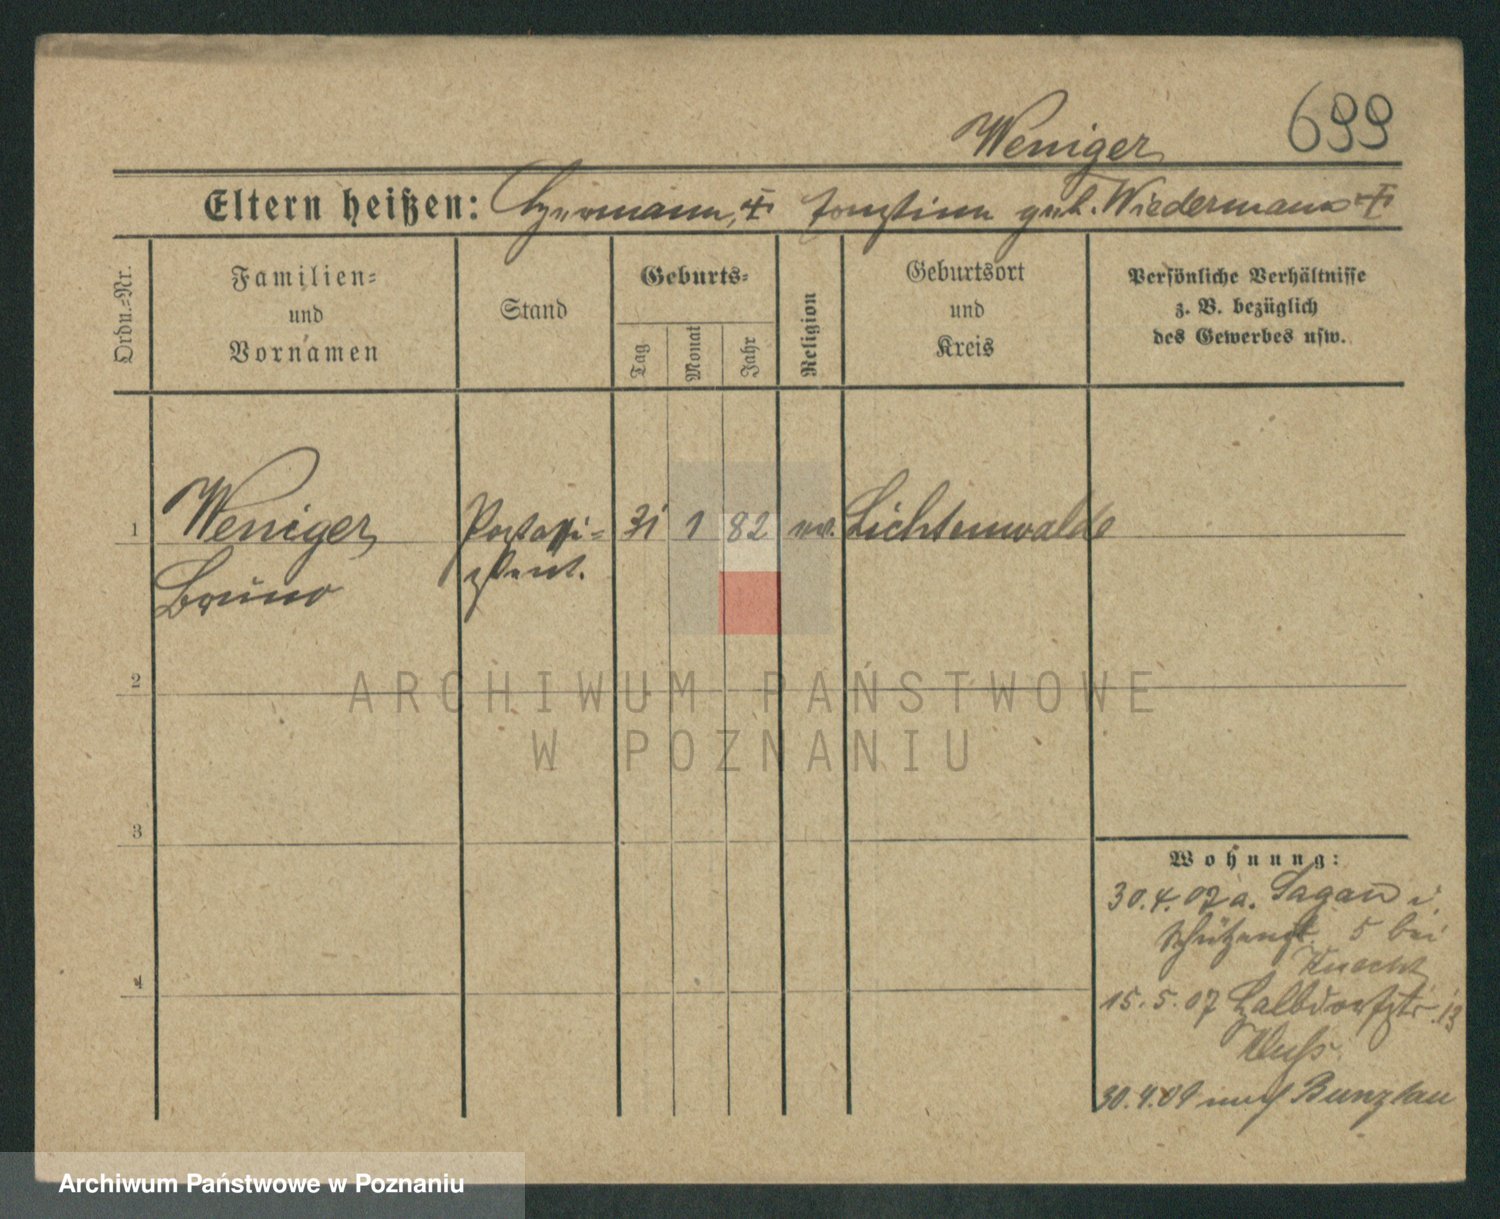 699
Weniger
Eltern heißen: Hermann, ✝ Ernstine geb. Wiedermann ✝
Ordn.-Nr.
Familien-
und
Vornamen
Stand
Geburts-
Tag
Monat
Jahr
Religion
Geburtsort
und
Kreis
Persönliche Verhältnisse
z. B. bezüglich
des Gewerbes usw.
1 Weniger Postassi- 31 1 82 ev. Lichtenwalde
Bruno stent.
2
3
4
Wohnung:
30.4.07 a. Sagan i.
Schützenst. 5 bei
Knecht
15.5.07 Halbdorfstr. 13
30.4.09 nach Bunzlau
ARCHIWUM PAŃSTWOWE
W POZNANIU
Archiwum Państwowe w Poznaniu